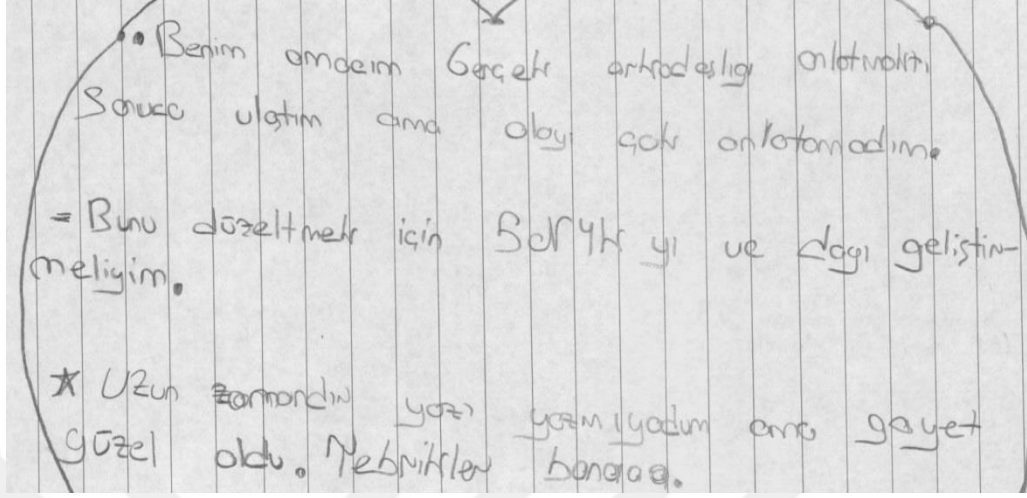 Benim amacım Gerçek arkadaşlığı anlatmaktı
Sonuca ulaştım ama olayı çok anlatamadım.
= Bunu düzeltmek için yı ve geliştir-
meliyim.
* Uzun zamandır yazı yazmıyadum ama gayet
güzel oldu. Tebrikler banaaa.